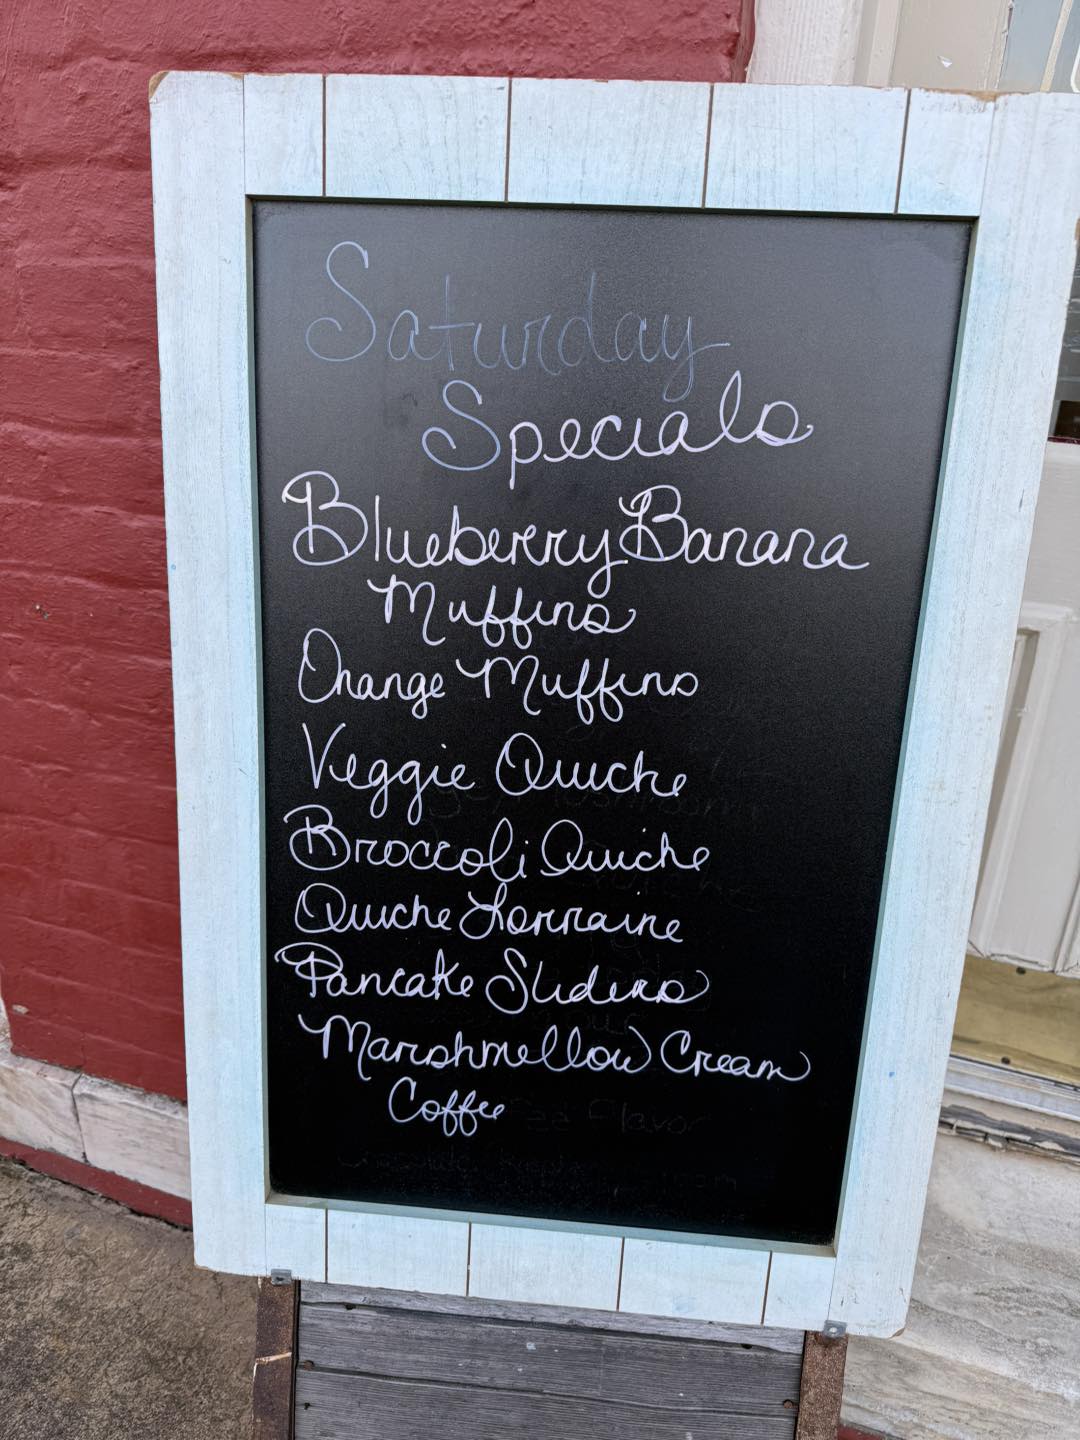 Saturday
Specials
Blueberry Banana
Muffins
Orange Muffins
Veggie Quiche
Broccoli Quiche
Quiche Lorraine
Pancake Sliders
Marshmellow Cream
Coffee